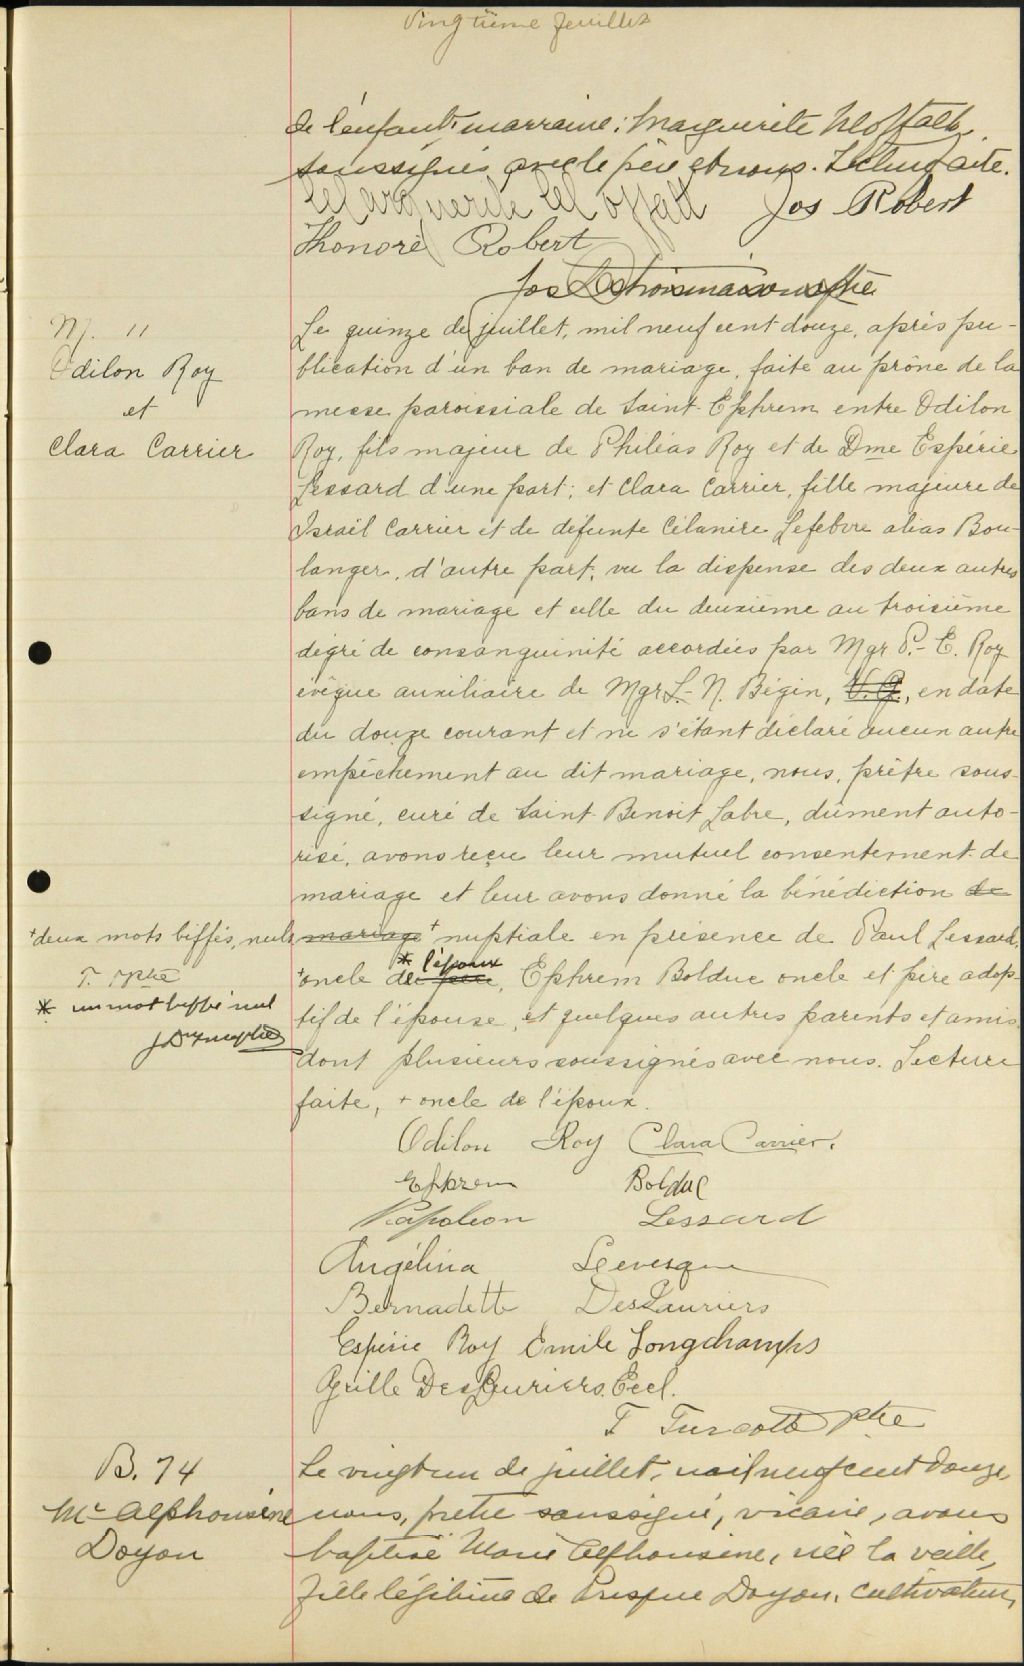 Vingtième feuillet
de l'enfant; marraine: Marguerite Moffatt,
soussignés avec le père et nous. Lecture faite.
Marguerite Moffatt Jos Robert
Honoré Robert
Jos Destroismaisons ptre
M. 11
Odilon Roy
et
Clara Carrier
Le quinze de juillet, mil neuf cent douze, après pu-
blication d'un ban de mariage, faite au prône de la
messe paroissiale de Saint-Ephrem entre Odilon
Roy, fils majeur de Philéas Roy et de Dme Espérie
Lessard d'une part; et Clara Carrier, fille majeure de
Israël Carrier et de défunte Célanire Lefebvre alias Bou-
langer, d'autre part, vu la dispense des deux autres
bans de mariage et celle du deuxième au troisième
dégré de consanguinité accordées par Mgr P.-E. Roy
évêque auxiliaire de Mgr L.-N. Bégin, V.G., en date
du douze courant et ne s'étant déclaré aucun autre
empêchement au dit mariage, nous, prêtre sous-
signé, curé de Saint-Benoit Labre, dûment auto-
risé, avons reçu leur mutuel consentement de
mariage et leur avons donné la bénédiction de
+deux mots biffés, nuls mariage + nuptiale en présence de Paul Lessard,
T. ptre
* un mot biffé nul
+oncle de * l'époux père, Ephrem Bolduc oncle et père adop-
tif de l'épouse, et quelques autres parents et amis
dont plusieurs soussignés avec nous. Lecture
faite, + oncle de l'époux.
Odilon Roy Clara Carrier.
Ephrem Bolduc
Napoleon Lessard
Angélina Levesque
Bernadette DesLauriers
Espérie Roy Emile Longchamps
DesLauriers Eccl.
F Turcotte ptre
B. 74
Me Alphonsine
Doyon
Le vingt un de juillet, mil neuf cent douze
nous, prêtre soussigné, vicaire, avons
baptisé Marie Alphonsine, née la veille,
fille légitime de Prisque Doyon, cultivateur,